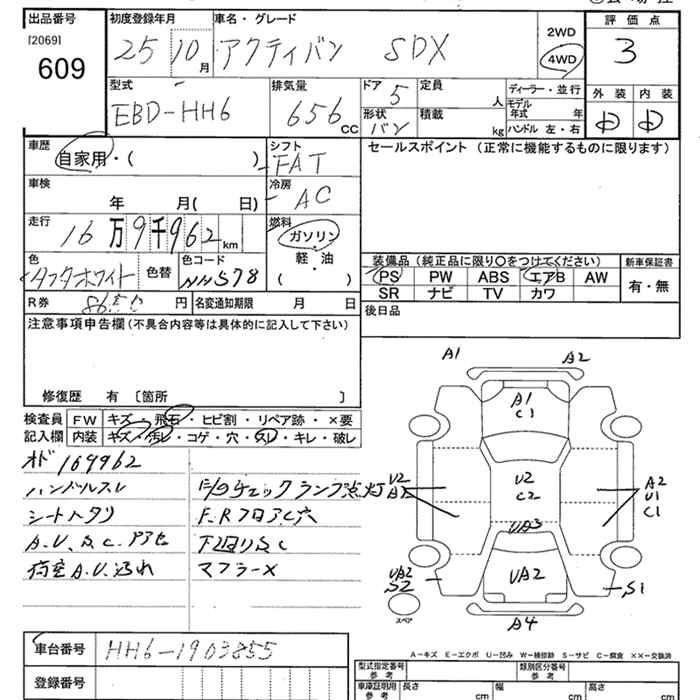 出品番号
[2069]
609
初度登録年月
25 10月
車名・グレード
アクティバン SDX
2WD
4WD
評価点
3
型式
EBD-HH6
排気量
656 CC
ドア 5
形状 バン
定員 人
積載 kg
ディーラー・並行
モデル年式 年
ハンドル 左・右
外装 内装
D D
車歴
自家用・( )
シフト
FAT
車検
年 月( 日)
冷房
AC
走行
16万9千962km
燃料
ガソリン
軽・油
( )
色
タフタホワイト
色替
色コード
NH578
R券 8650円
名変通知期限 月 日
セールスポイント(正常に機能するものに限ります)
装備品(純正品に限り〇をつけてください)
PS PW ABS エアB AW
SR ナビ TV カワ
新車保証書
有・無
後日品
注意事項申告欄(不具合内容等は具体的に記入して下さい)
修復歴 有 〔箇所 〕
検査員記入欄
FW キズ・飛石・ヒビ割・リペア跡・×要
内装 キズ・汚レ・コゲ・穴・スレ・キレ・破レ
オド 169962
ハンドルスレ
シートヘタリ
A.U、S.C.アアセ
荷室A.U.汚れ
エンジンチェックランプ点灯
F.RフロアC穴
下回りS.C
マフラーX
A1 A2
A1
C1
U2
U2
C2
A2
U1
C1
UA3
UA2
UA2
S2
S1
A4
スペア
A-キズ E-エクボ U-凹み W-補修跡 S-サビ C-腐食 ××-交換済
車台番号 HH6-1903855
登録番号
型式指定番号 参考
類別区分番号 参考
車庫証明用 参考
長さ cm
幅 cm
高さ cm